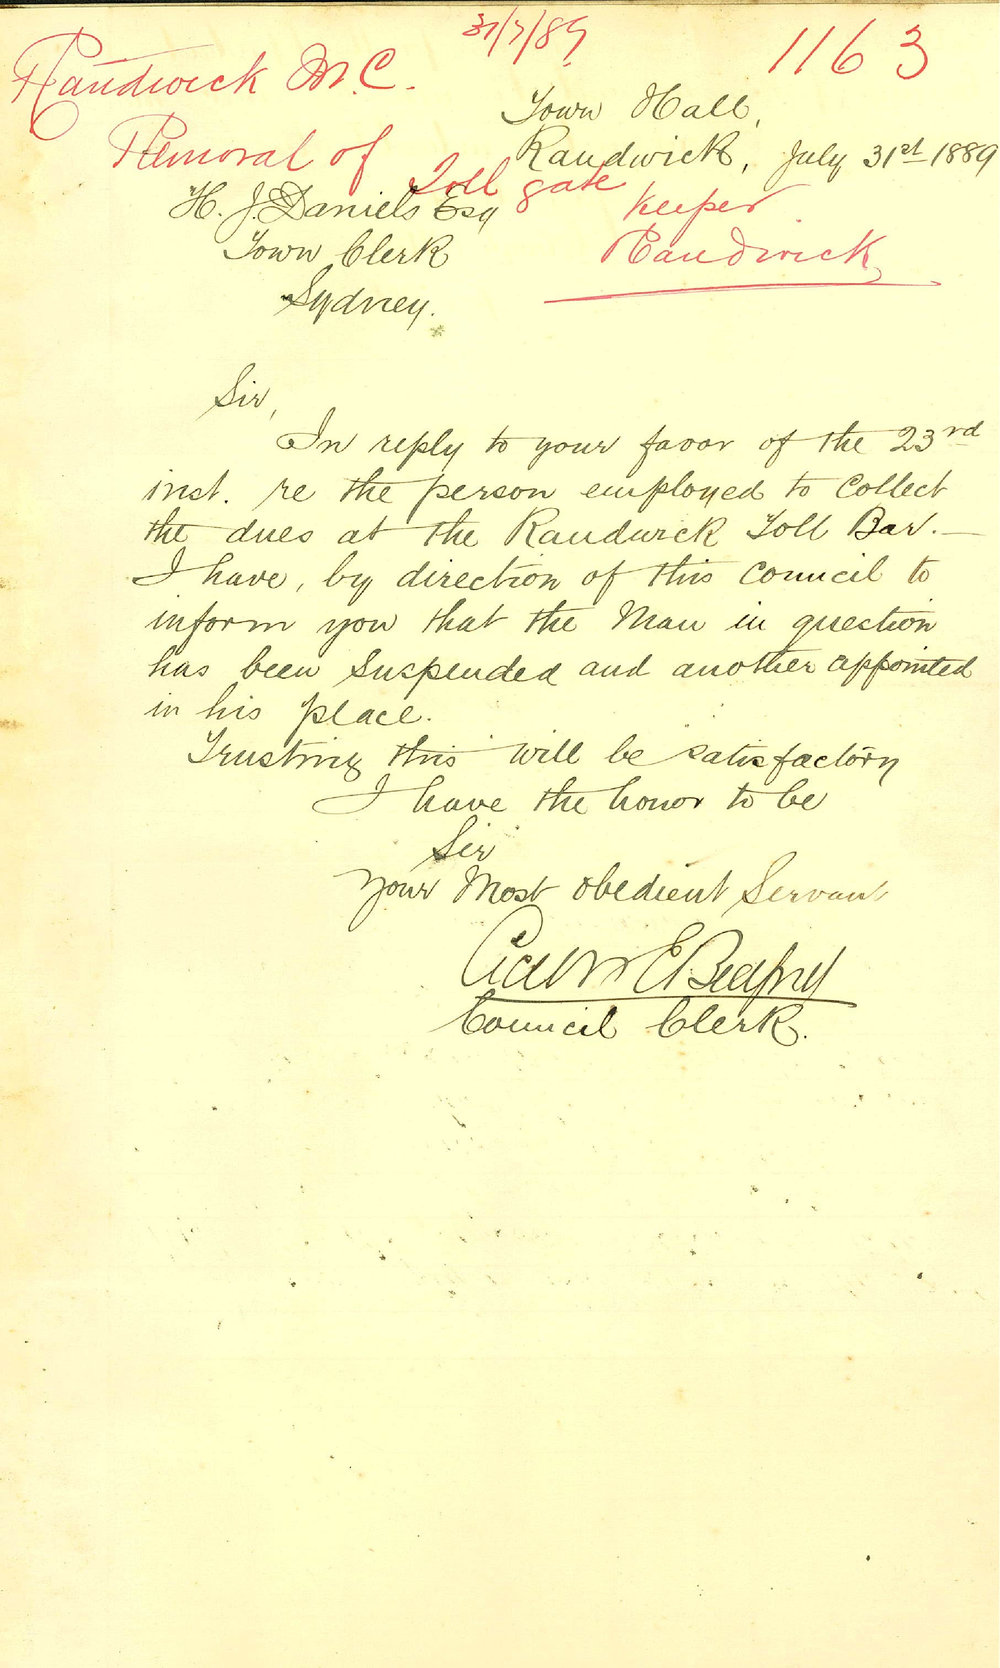 31/7/89
1163
Randwick M.C.
Removal of Toll gate keeper
Randwick
Town Hall,
Randwick, July 31st 1889
H. J. Daniels Esq
Town Clerk
Sydney.
Sir,
In reply to your favor of the 23rd
inst. re the person employed to collect
the dues at the Randwick Toll Bar.—
I have, by direction of this Council to
inform you that the Man in question
has been Suspended and another appointed
in his place.
Trusting this will be satisfactory
I have the honor to be
Sir
Your Most obedient Servant
E. Bedford
Council Clerk.